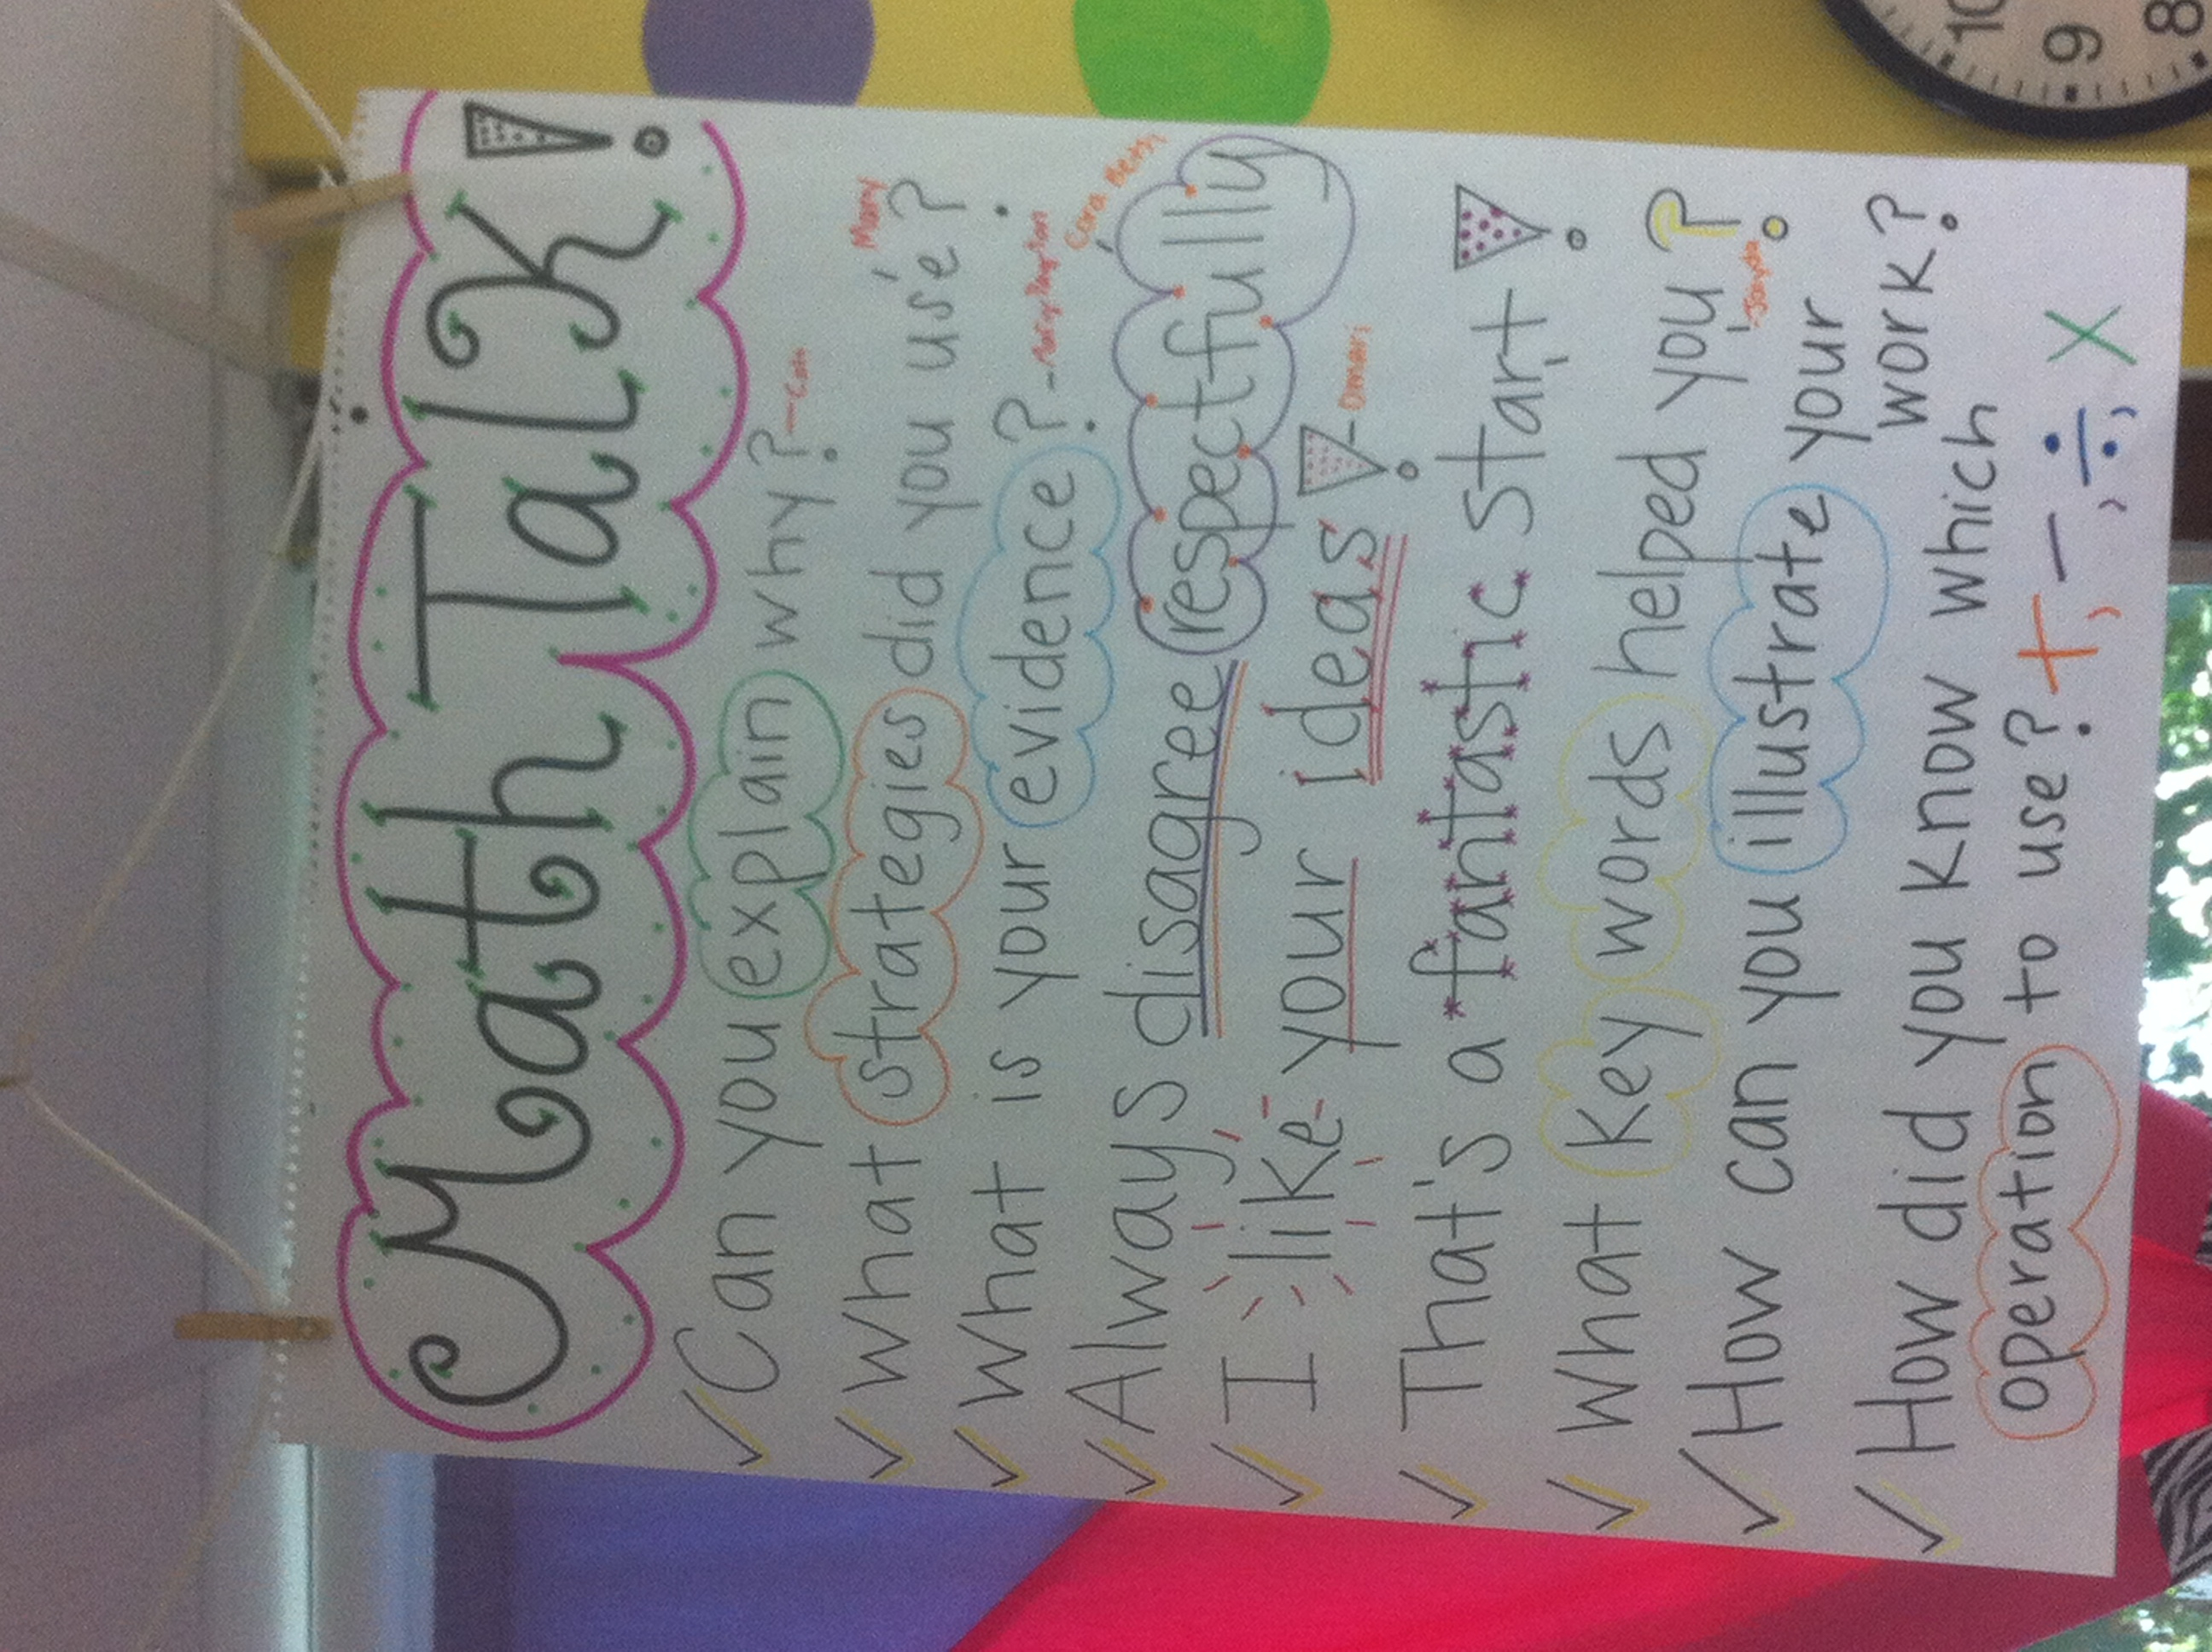 Math Talk!
✓ Can you explain why? -Can
✓ What strategies did you use? Mary
✓ What is your evidence? -Mary Payton
✓ Always disagree respectfully Cara Beth
✓ I like your ideas! -Omari
✓ That's a fantastic start!
✓ What key words helped you?
✓ How can you illustrate your
work?
✓ How did you know which
operation to use? +, -, ÷, X
10
9
8